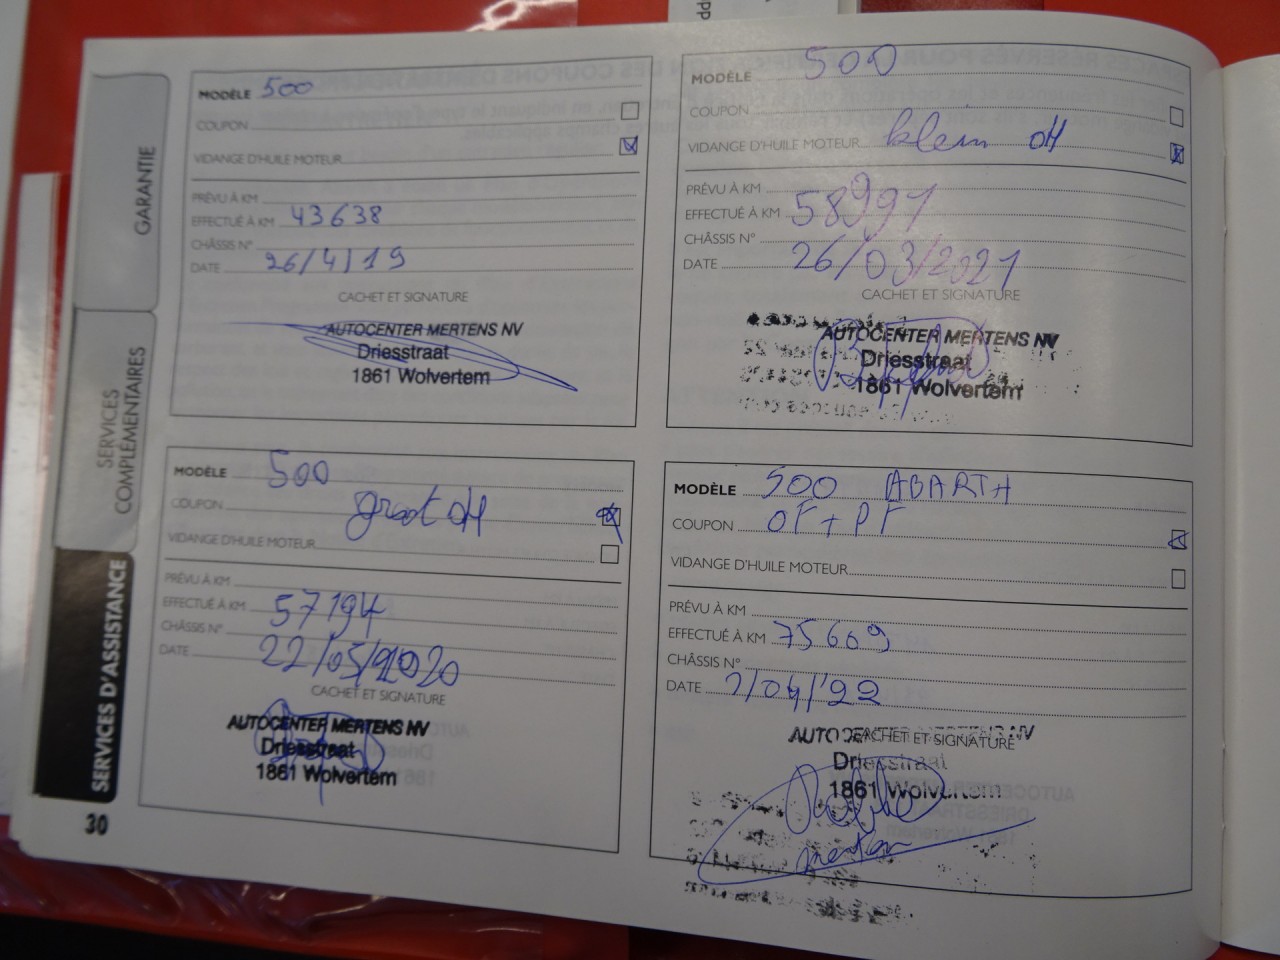 GARANTIE
SERVICES
COMPLÉMENTAIRES
SERVICES D'ASSISTANCE
30
MODÈLE 500
COUPON
VIDANGE D'HUILE MOTEUR
PRÉVU À KM
EFFECTUÉ À KM 43638
CHÂSSIS N°
DATE 26/4/19
CACHET ET SIGNATURE
AUTOCENTER MERTENS NV
Driesstraat
1861 Wolvertem
MODÈLE 500
COUPON
VIDANGE D'HUILE MOTEUR klein OH
PRÉVU À KM
EFFECTUÉ À KM 58991
CHÂSSIS N°
DATE 26/03/2021
CACHET ET SIGNATURE
AUTOCENTER MERTENS NV
Driesstraat
1861 Wolvertem
MODÈLE 500
COUPON groot OH
VIDANGE D'HUILE MOTEUR
PRÉVU À KM
EFFECTUÉ À KM 57194
CHÂSSIS N°
DATE 22/05/2020
CACHET ET SIGNATURE
AUTOCENTER MERTENS NV
Driesstraat
1861 Wolvertem
MODÈLE 500 ABARTH
COUPON OF + PF
VIDANGE D'HUILE MOTEUR
PRÉVU À KM
EFFECTUÉ À KM 75609
CHÂSSIS N°
DATE 7/04/'22
CACHET ET SIGNATURE
AUTOCENTER MERTENS NV
Driesstraat
1861 Wolvertem